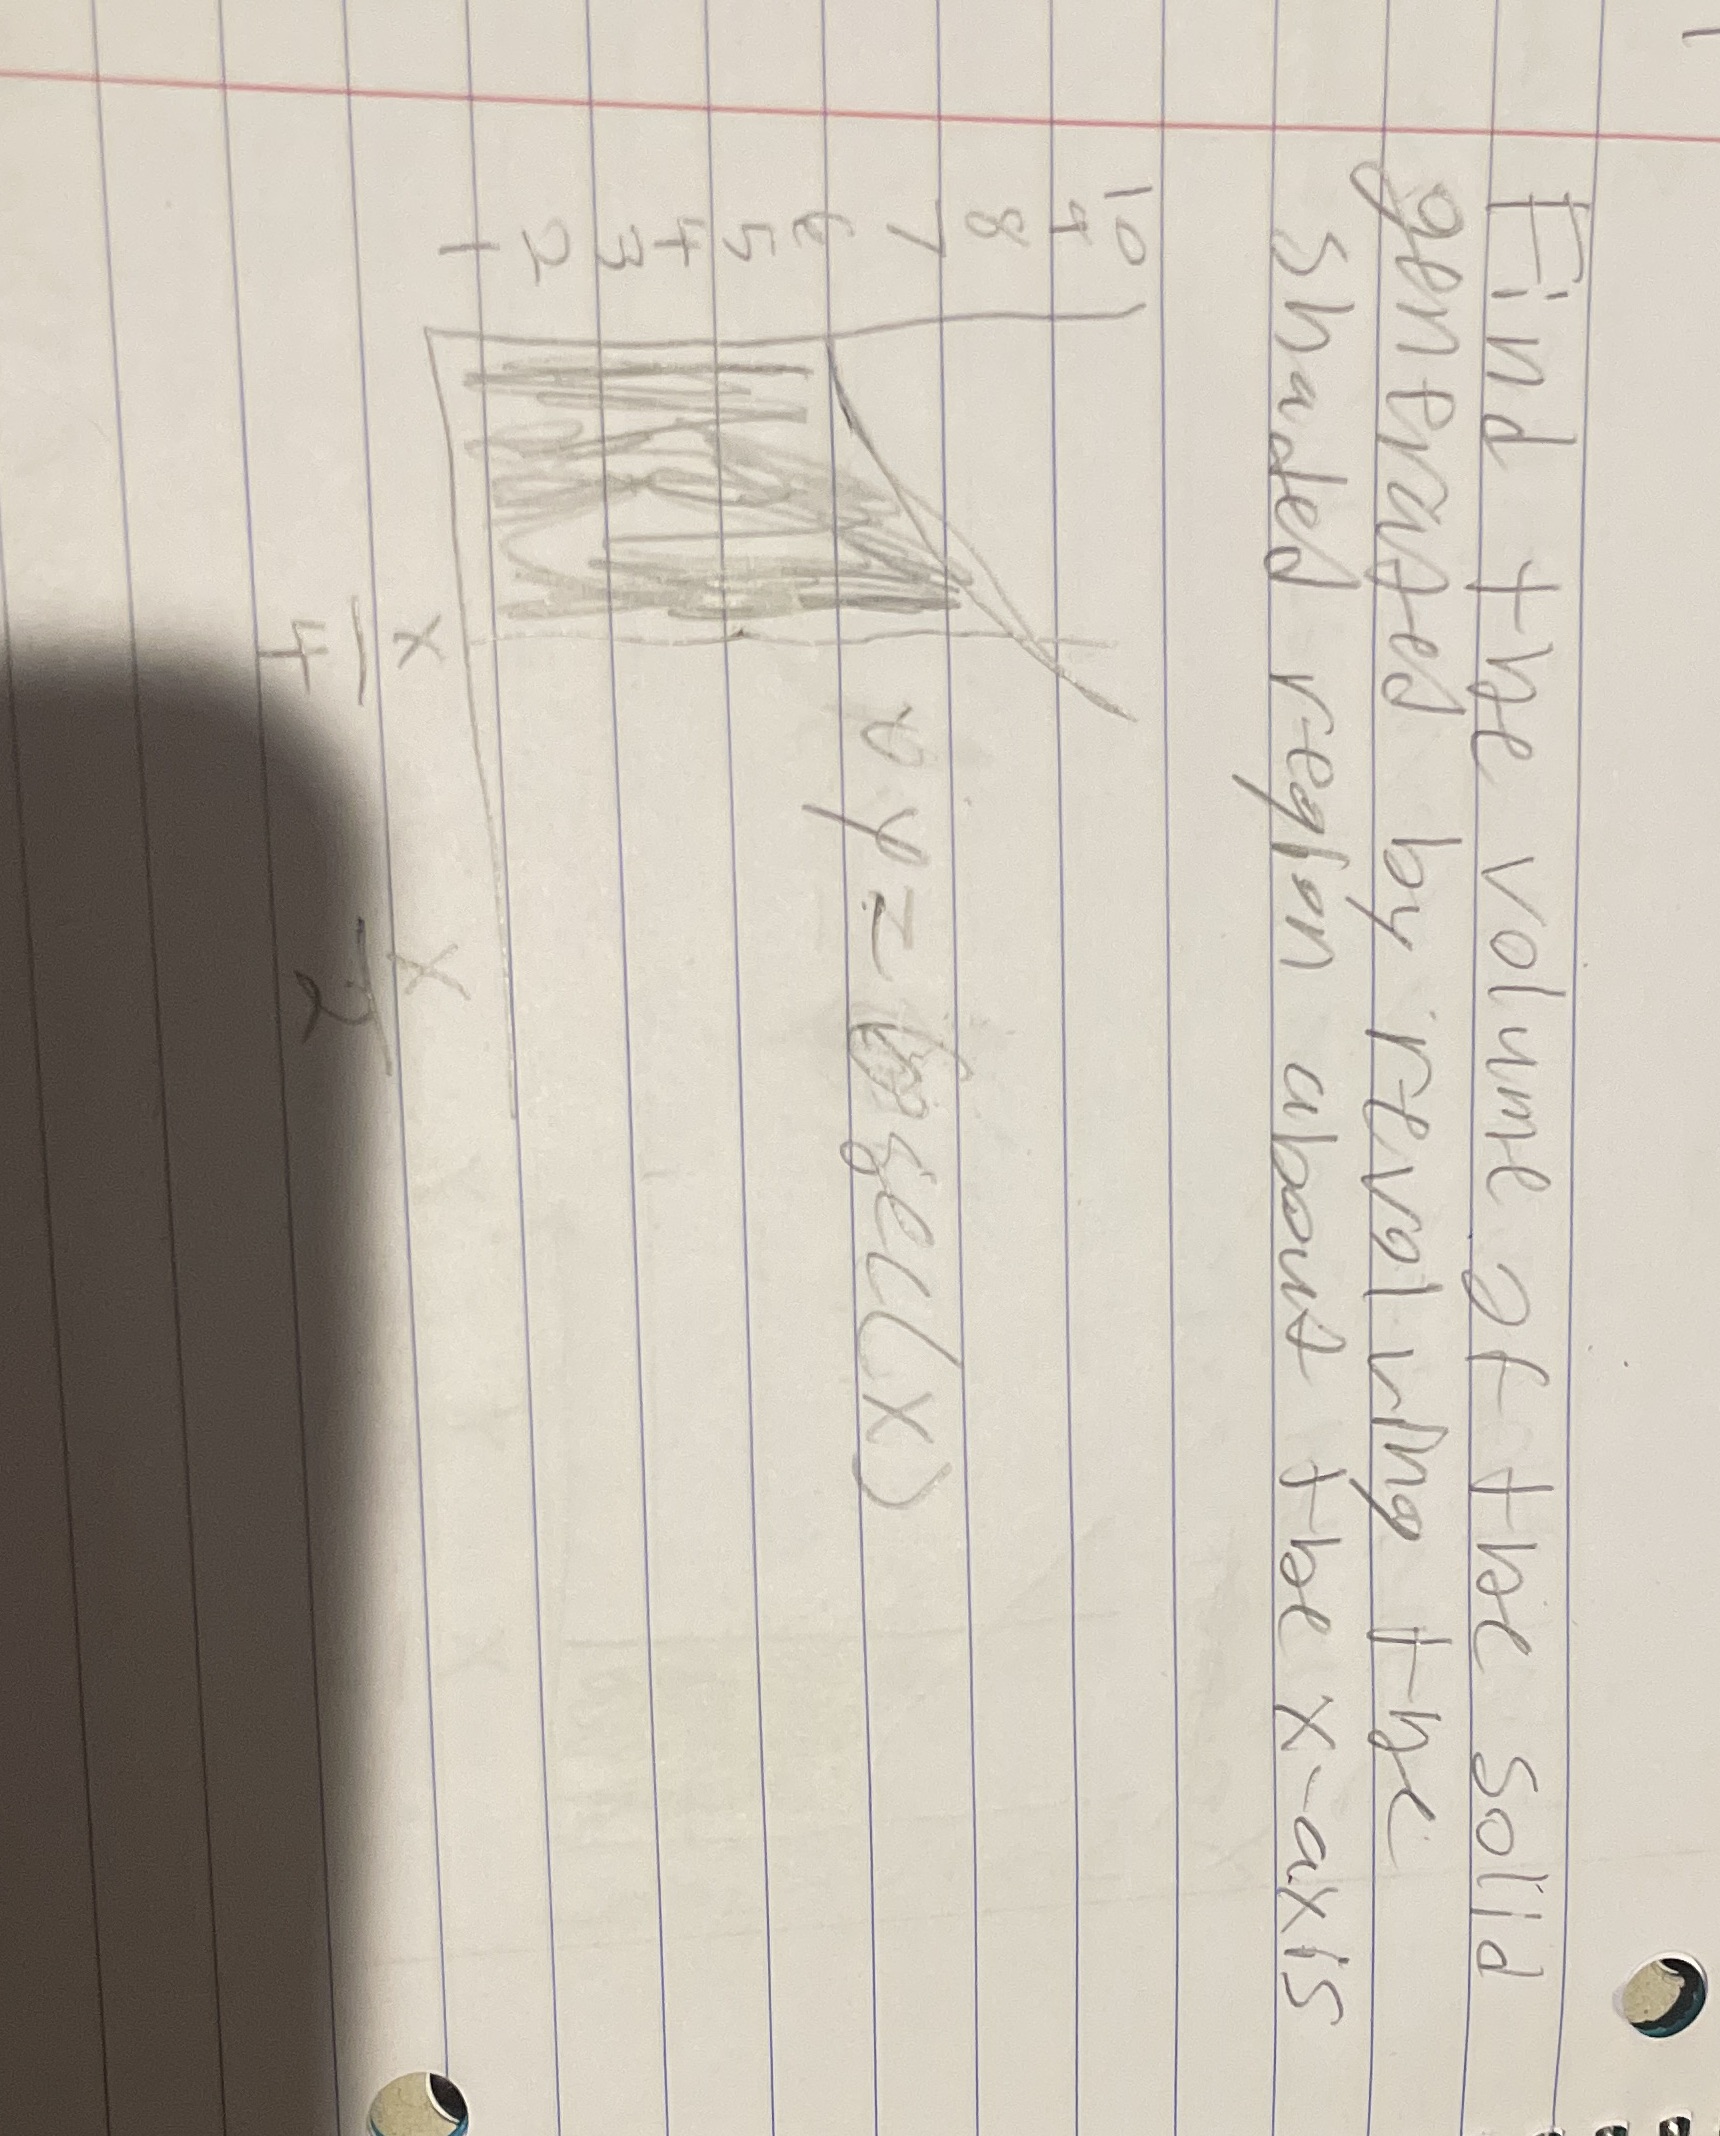 Find the volume of the solid
generated by revolving the
shaded region about the x-axis
10
9
8
7
6
5
4
3
2
1
y = 6 sec(x)
x
4
x
2